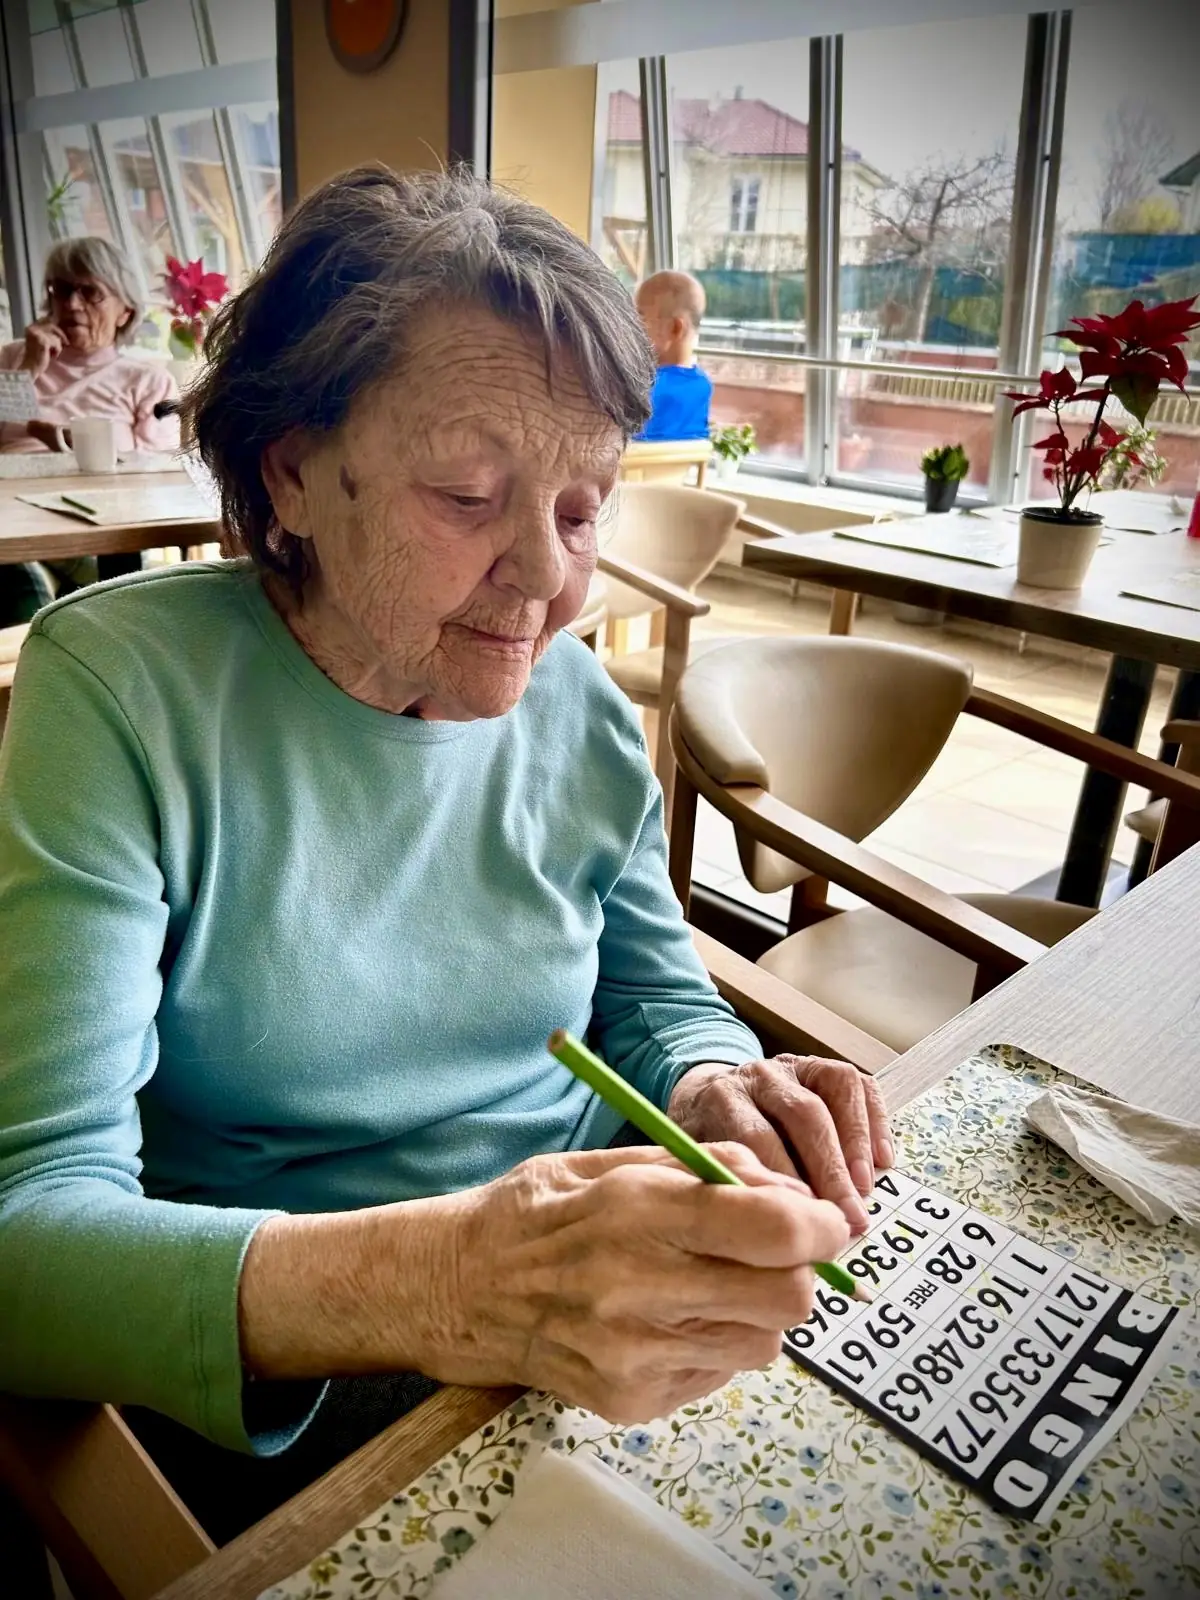 BINGO
12 17 33 56 72
1 16 32 48 63
6 28 FREE 59 61
3 19 36 69
4